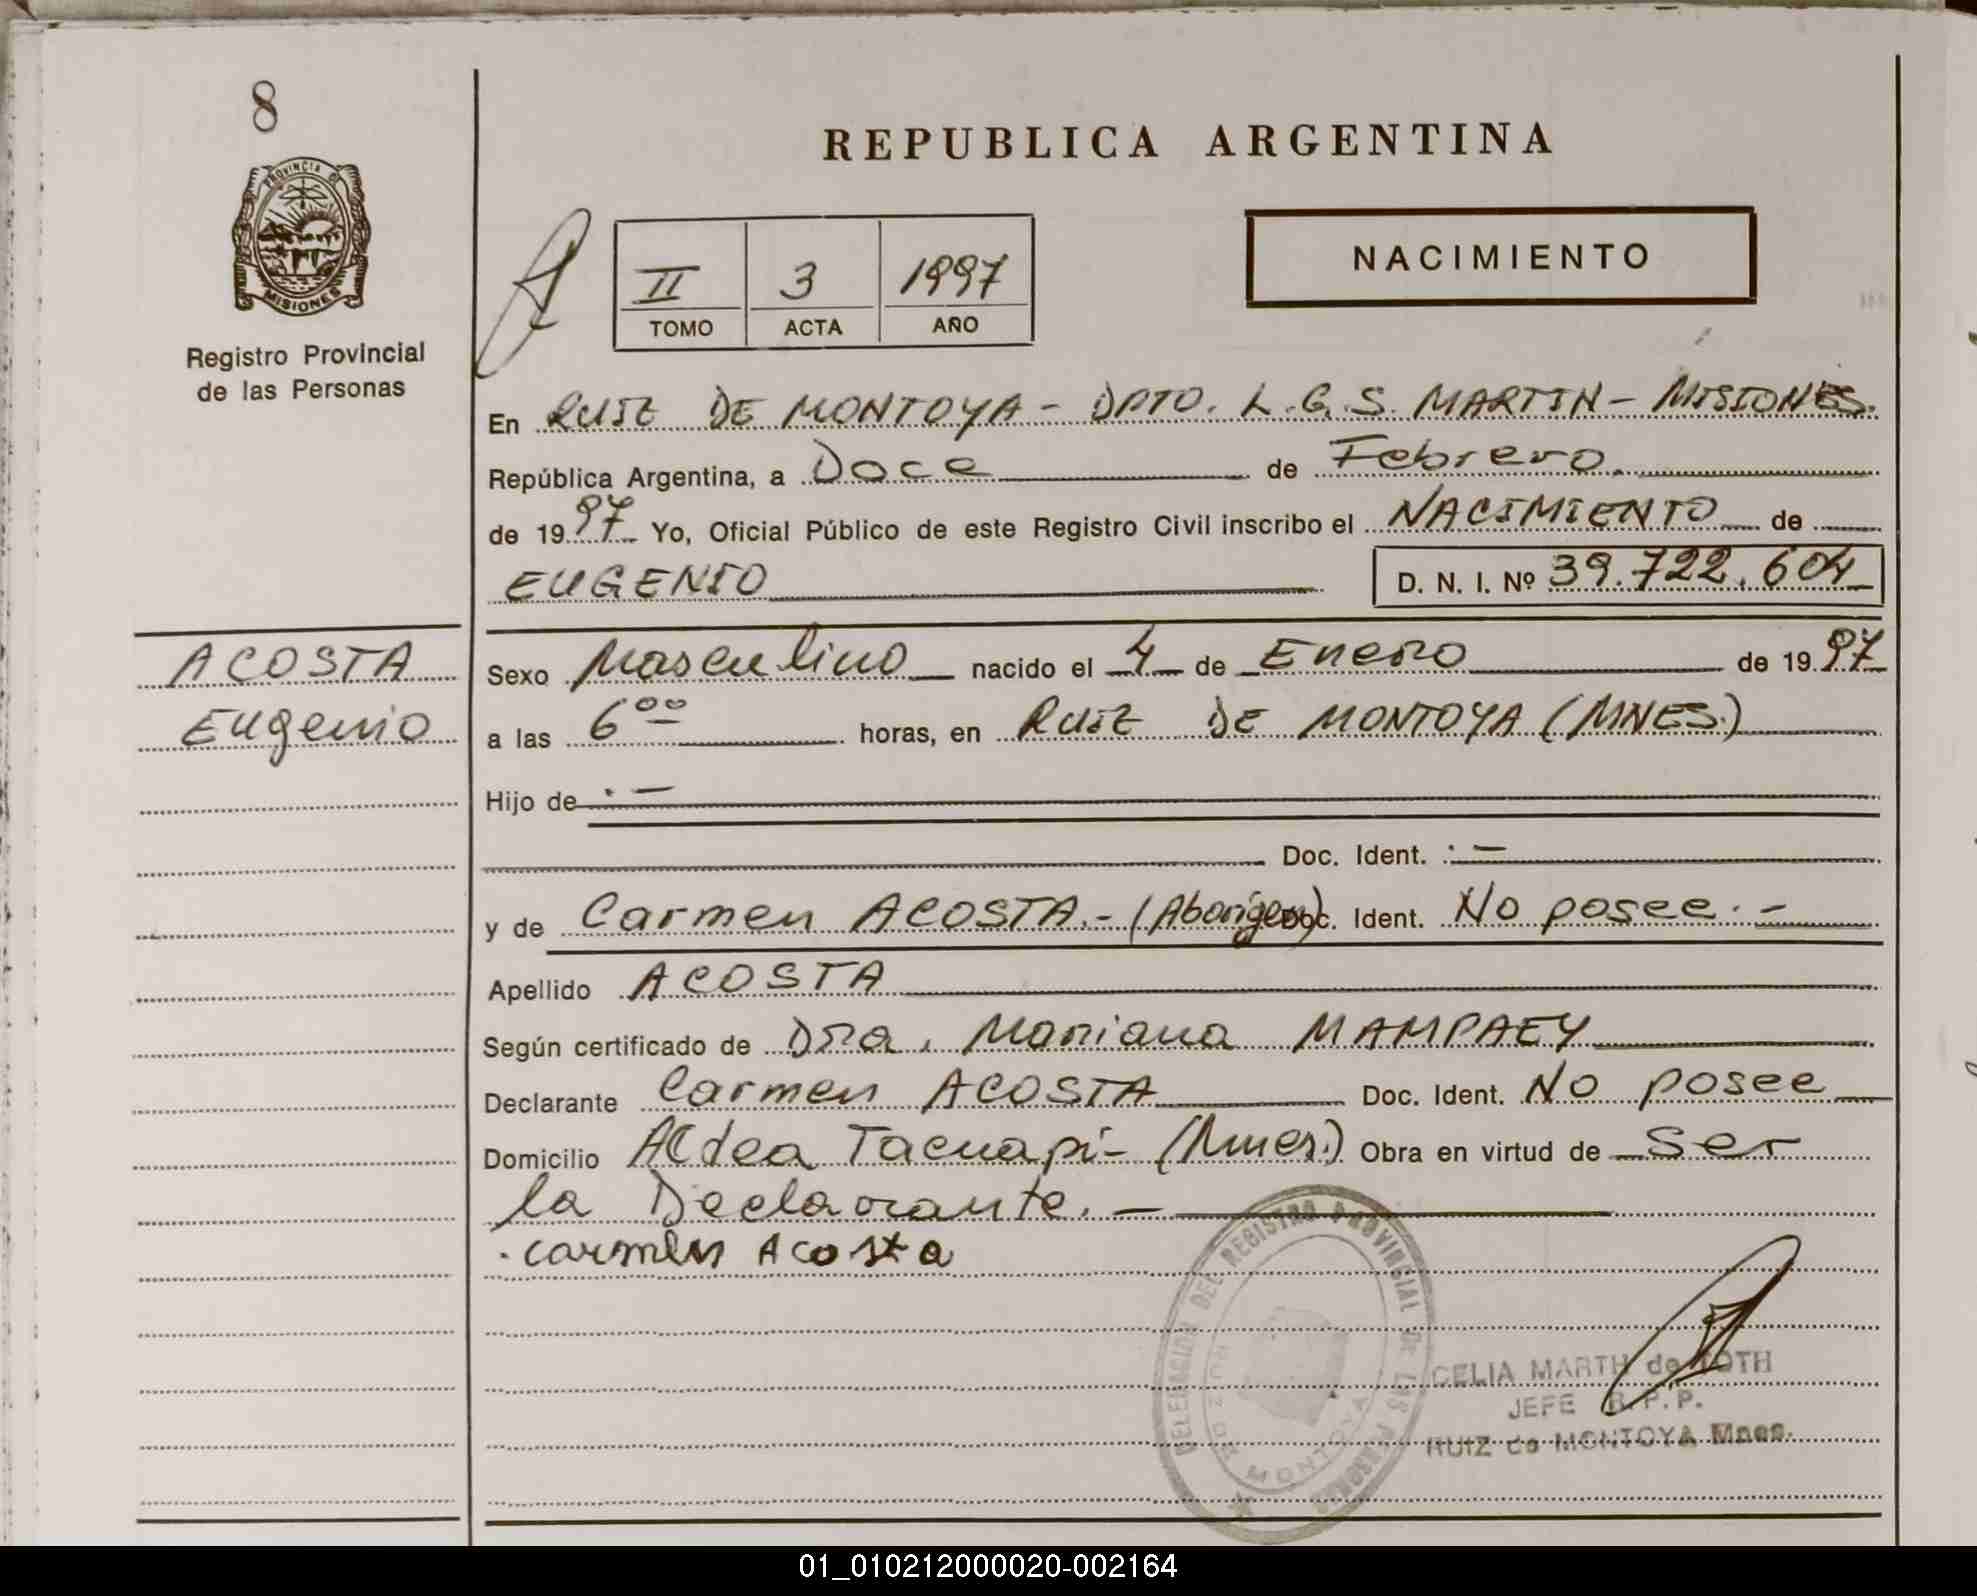 8
PROVINCIA DE
MISIONES
Registro Provincial
de las Personas
REPUBLICA ARGENTINA
II 3 1997
TOMO ACTA AÑO
NACIMIENTO
En RUIZ DE MONTOYA - DPTO. L.G.S. MARTIN - MISIONES.
República Argentina, a Doce de Febrero.
de 1997 Yo, Oficial Público de este Registro Civil inscribo el NACIMIENTO de
EUGENIO D. N. I. Nº 39.722.604
ACOSTA
Eugenio
Sexo Masculino nacido el 4 de Enero de 1997
a las 6 00 horas, en RUIZ DE MONTOYA (MNES.)
Hijo de . —
Doc. Ident. . —
y de Carmen ACOSTA. - (Aborigen) Doc. Ident. No posee. -
Apellido ACOSTA
Según certificado de Dra. Mariana MAMPAEY
Declarante Carmen ACOSTA Doc. Ident. No posee
Domicilio Aldea Tacuapi - (Mnes.) Obra en virtud de Ser
la Declarante. —
. carmen Acosta
DELEGACION DEL REGISTRO PROVINCIAL DE LAS PERSONAS
RUIZ DE MONTOYA
CELIA MARTH de TOTH
JEFE R.P.P.
RUIZ de MONTOYA Mnes.
01_010212000020-002164